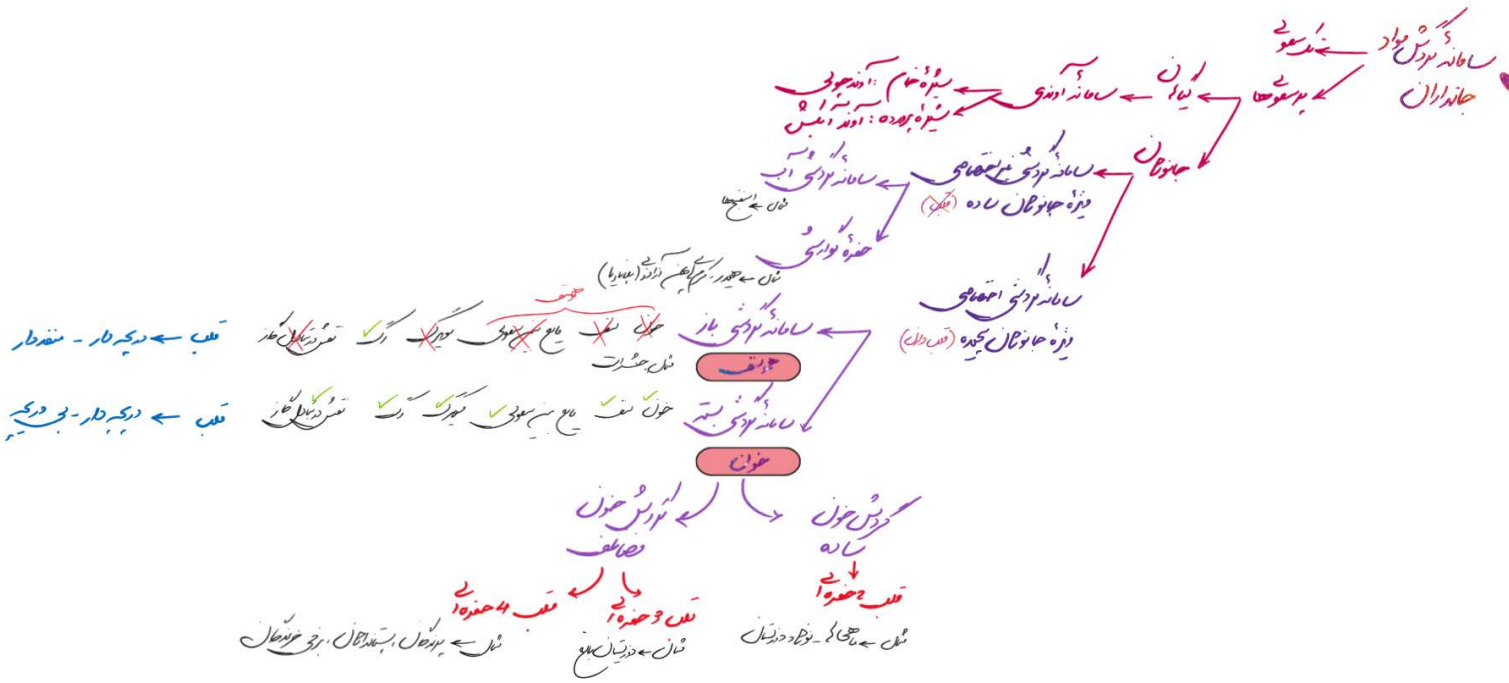 سامانهٔ گردش مواد جانداران
تک سلولی
پرسلولی‌ها
گیاهان
سامانهٔ آوندی
شیرهٔ خام: آوند چوبی
شیرهٔ پرورده: آوند آبکش
جانوران
سامانهٔ گردشی غیر اختصاصی
ویژهٔ جانوران ساده (قلب)
سامانهٔ گردشی آب
مثال ← اسفنج‌ها
حفرهٔ گوارشی
مثال ← هیدر - کرم‌های پهن آزادزی (پلاناریا)
سامانهٔ گردشی اختصاصی
ویژهٔ جانوران پیچیده (قلب دارن)
همولنف
سامانهٔ گردشی باز
خون لنف مایع بین سلولی مویرگ رگ نقش در تبادل گاز
قلب ← دریچه دار - منفذدار
همولنف
مثال حشرات
سامانهٔ گردشی بسته
خون لنف مایع بین سلولی مویرگ رگ نقش در تبادل گاز
قلب ← دریچه دار - بی دریچه
خوناب
گردش خون ساده
قلب 2 حفره‌ای
مثال ← ماهی‌ها - نوزاد دوزیستان
گردش خون مضاعف
قلب 3 حفره‌ای
مثال ← دوزیستان بالغ
قلب 4 حفره‌ای
مثال ← پرندگان، پستانداران، برخی خزندگان